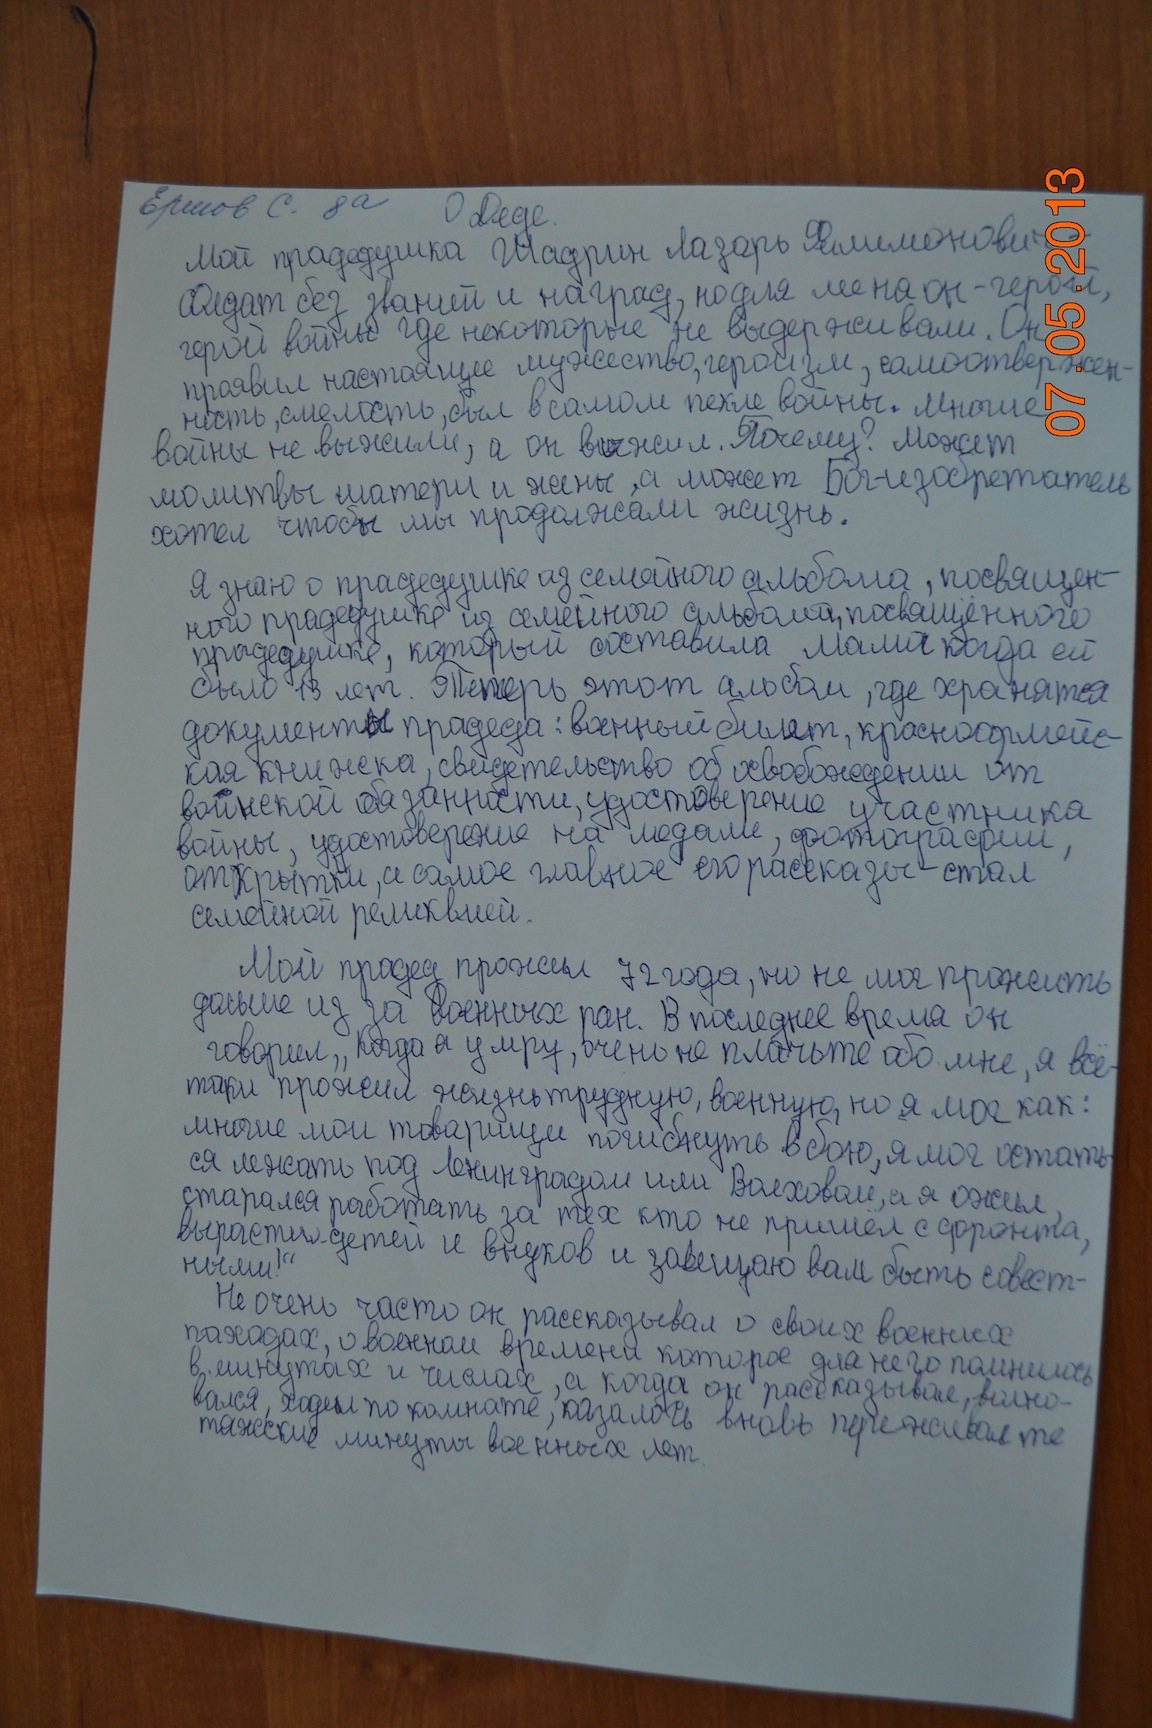 Ершов С. 8а
О Деде.
Мой прадедушка Шадрин Лазарь Филимонович-
Солдат без званий и наград, но для меня он-герой,
герой войны где некоторые не выдерживали. Он
проявил настоящие мужество, героизм, самоотвержен-
ность, смелость, был в самом пекле войны. Многие
войны не выжили, а он выжил. Почему? Может
молитвы матери и жены, а может Бог-изобретатель
хотел чтобы мы продолжали жизнь.
Я знаю о прадедушке из семейного альбома, посвящен-
ного прадедушке из семейного альбома, посвящённого
прадедушке, который составила мама когда ей
было 13 лет. Теперь этот альбом, где хранятся
документы прадеда: военный билет, красноармейс-
кая книжка, свидетельство об освобождении от
воинской обязанности, удостоверение участника
войны, удостоверение на медали, фотографии,
открытки, а самое главное его рассказы-стал
семейной реликвией.
Мой прадед прожил 72 года, но не мог прожить
дольше из за военных ран. В последнее время он
говорил „Когда я умру, очень не плачьте обо мне, я всё-
таки прожил жизнь трудную, военную, но я мог как:
многие мои товарищи погибнуть в бою, я мог остать-
ся лежать под Ленинградом или Волховом, а я ожил,
старался работать за тех кто не пришёл с фронта,
вырастил детей и внуков и завещаю вам быть совест-
ными!“
Не очень часто он рассказывал о своих военных
походах, о военном времени которое для него помнилось
в минутах и числах, а когда он рассказывал, волно-
вался, ходил по комнате, казалось вновь переживал те
тяжские минуты военных лет.
07.05.2013